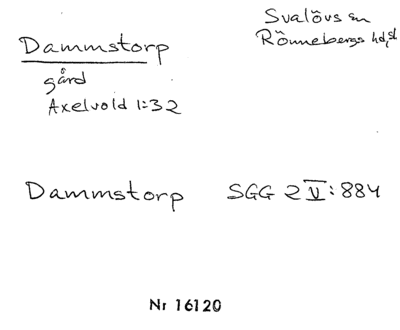 Svalövs sn
Rönnebergs hd, sk
Dammstorp
gård
Axelvold 1:32
Dammstorp SGG 2 V: 884
Nr 16120